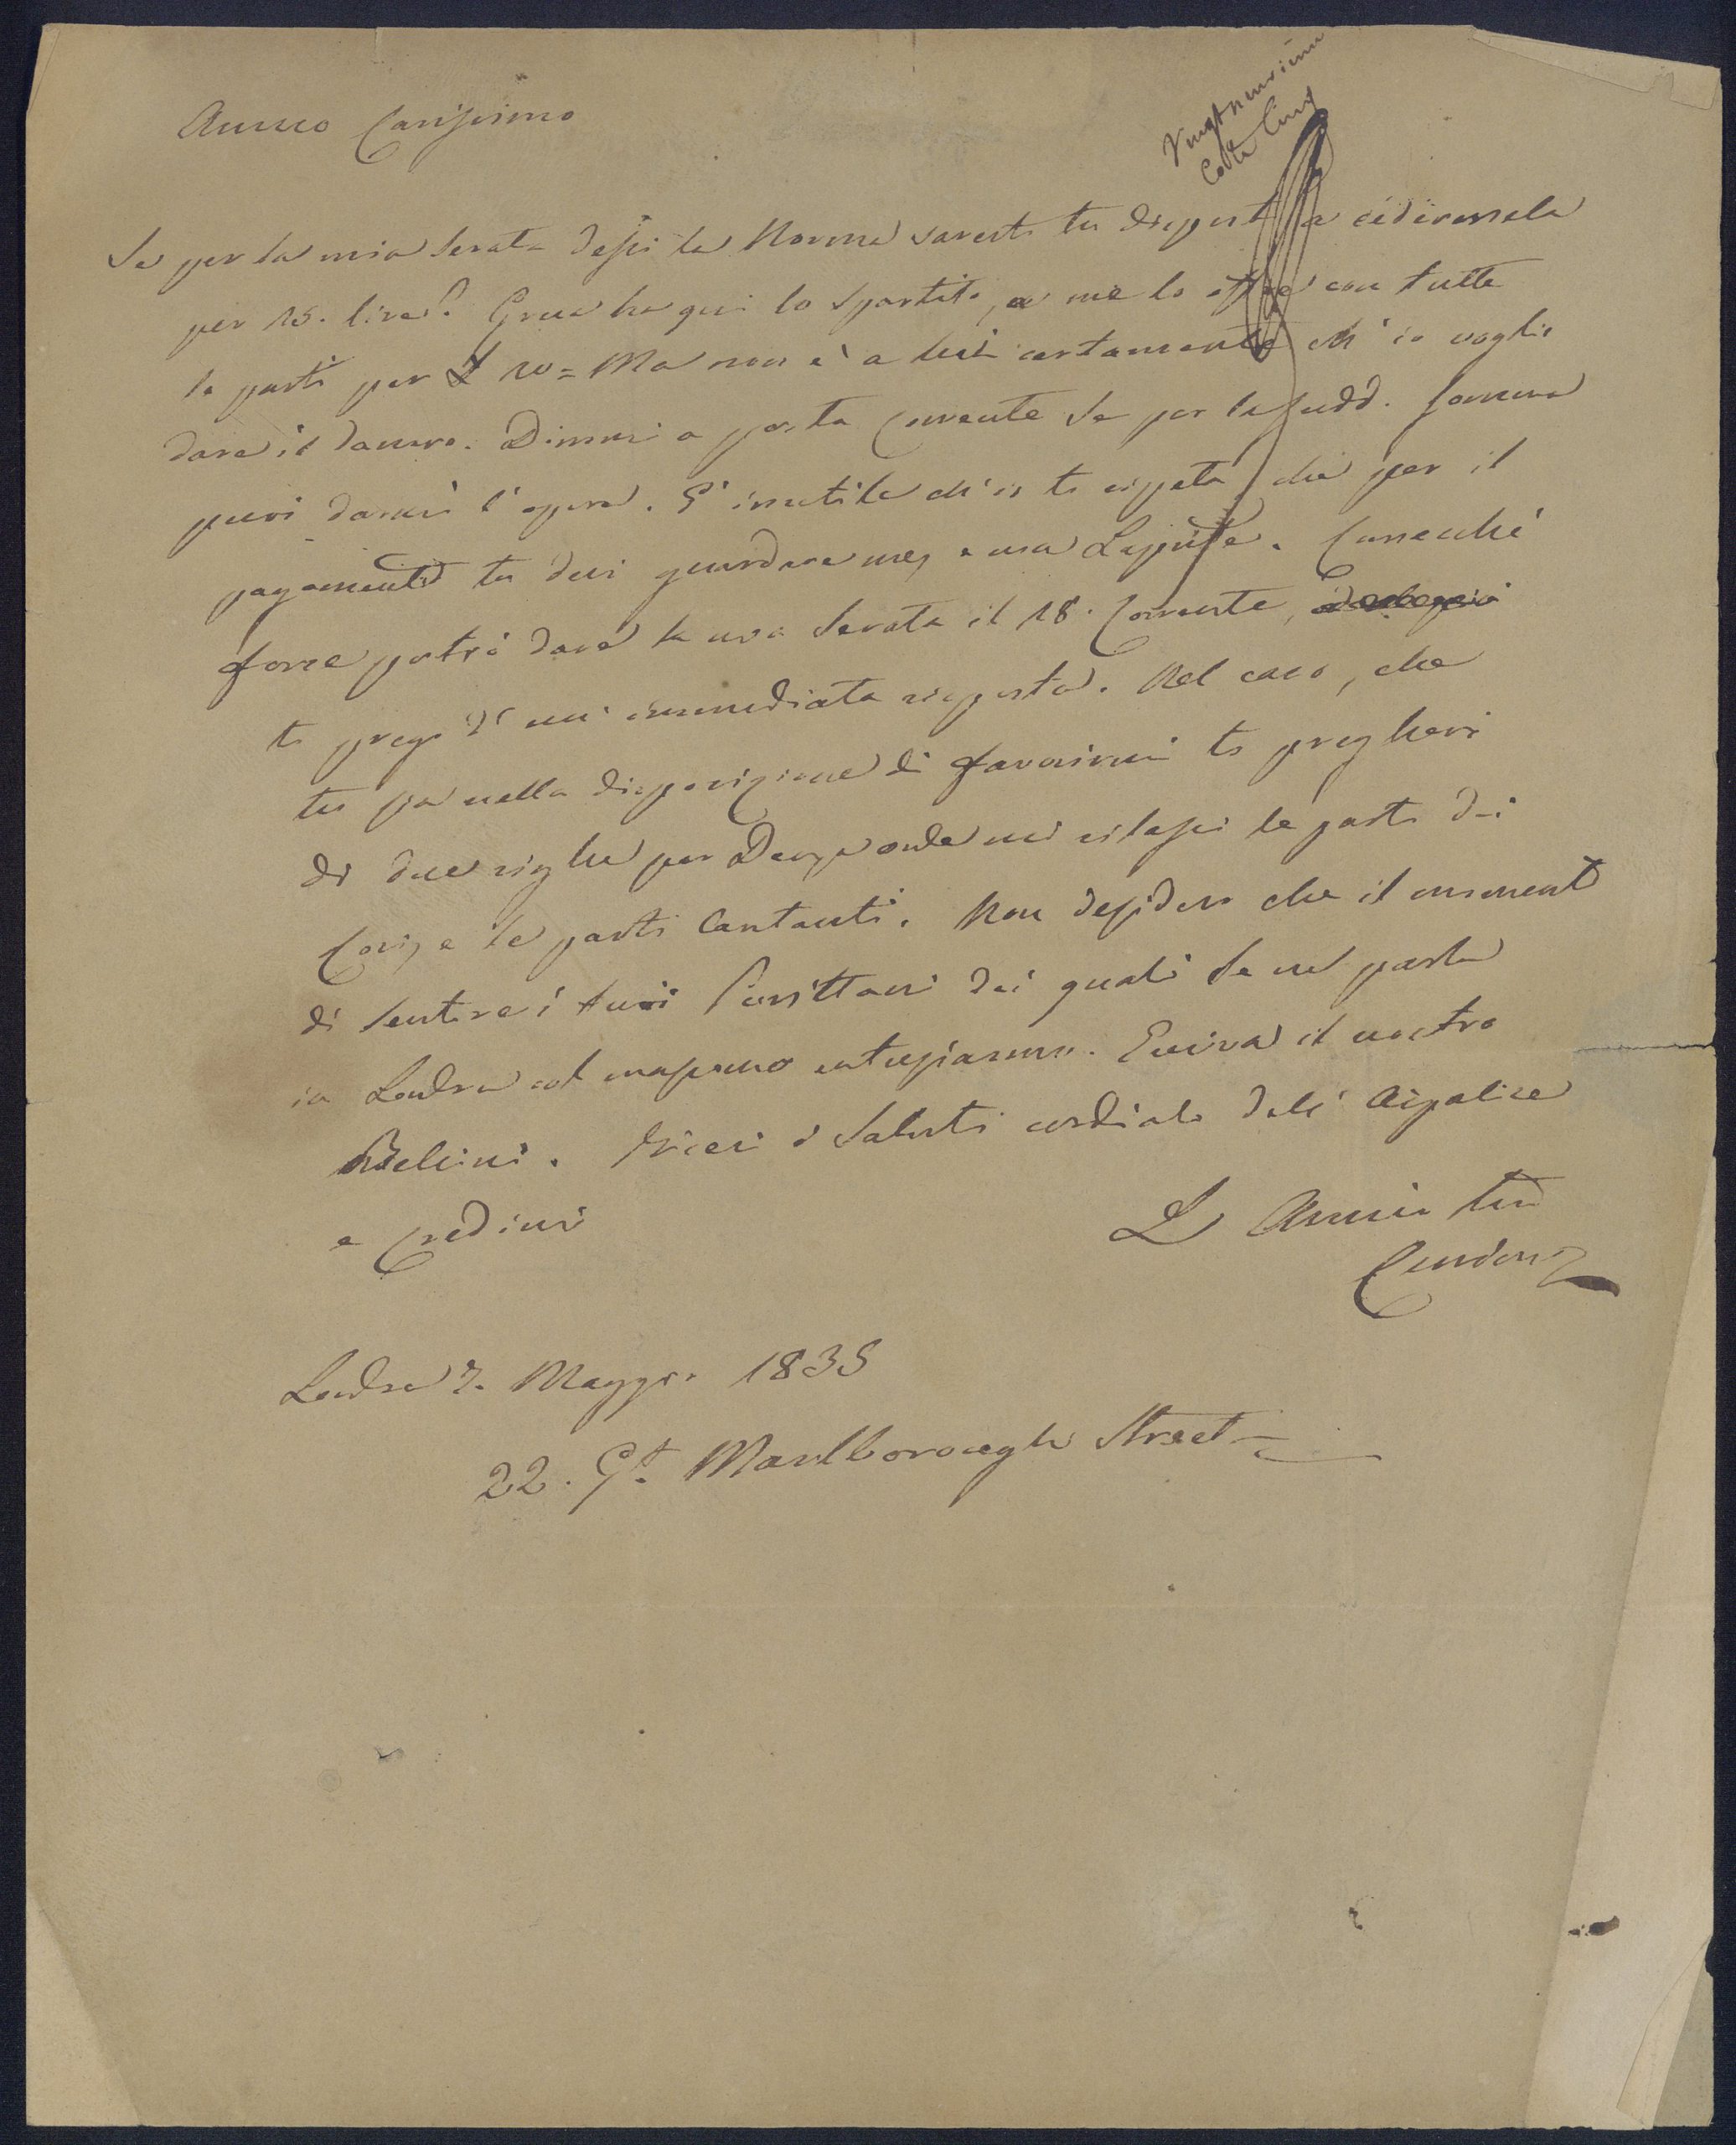 Amico Carissimo
Vingt neuvième
Cote Cinq
Se per la mia serata dassi la Norma saresti tu disposto a cedermela
per 15. lire? Grua ha qui lo spartito, a me lo offre con tutte
le parti per £ 10 = Ma non è a lui certamente ch'io voglia
dare il danaro. Dimmi a posta corrente se per la sudd. somma
puoi darmi l'opera. È inutile ch'io ti ripeta che per il
pagamento tu devi guardare me, e non Laporte. Conecché
forse potrò dare la mia serata il 18. Corrente,
ti prego d'un immediata risposta. Nel caso, che
tu sia nella disposizione di favorirmi ti pregherei
di due righe per onde mi rilassi le parti dei
Cori, e le parti Cantanti. Non desidero che il momento
di sentire i tuoi Purittani dei quali se ne parla
in Londra col massimo entusiasmo. Evviva il nostro
Bellini. Ricevi i saluti cordiali dell'
e credimi
L' Amico tuo
Londra 7. Maggio 1835
22. Gt. Marlborough Street